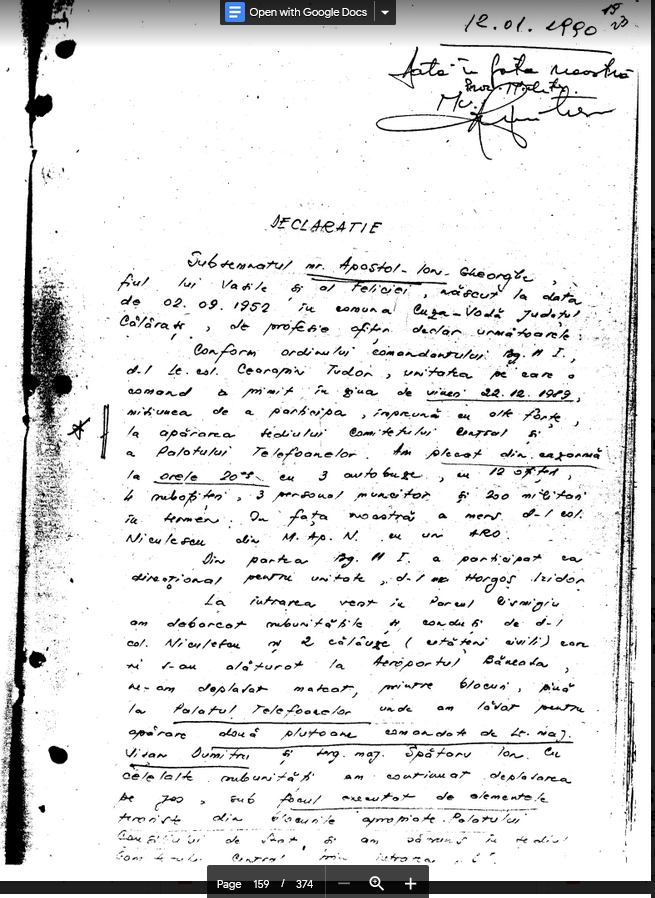 Open with Google Docs
12.01.1990
dată în fața noastră
DECLARATIE
Subsemnatul mr. Apostol-Ion-Gheorghe,
fiul lui Vasile și al Feliciei, născut la data
de 02.09.1952 în comuna Cuza-Vodă județul
Călărași, de profesie ofițer declar următoarele:
Conform ordinului comandantului Bg. M I,
d-l Lt. col. Tudor, unitatea pe care o
comand a primit în ziua de vineri 22.12.1989,
misiunea de a participa, împreună cu alte forțe,
la apărarea sediului Comitetului Central și
a Palatului Telefoanelor. Am plecat din cazarmă
la orele 20 cu 3 autobuze, cu 12 ofițeri,
4 subofițeri, 3 personal muncitor și 200 militari
în termen. In fața noastră a mers d-l col.
Niculescu din M. Ap. N. cu un ARO.
Din partea Bg. M I. a participat ca
direcțional pentru unitate, d-l Horgoș Izidor
La intrarea vest în Parcul Cismigiu
am debarcat subunitățile și conduși de d-l
col. Niculescu și 2 călăuze (cetățeni civili) care
ni s-au alăturat la Aeroportul Băneasa,
ne-am deplasat mascat, printre blocuri, pînă
la Palatul Telefoanelor unde am lăsat pentru
apărare două plutoane comandate de Lt. maj.
Vișan Dumitru și serg. maj. Spătaru Ion. Cu
celelalte subunități am continuat deplasarea
pe jos, sub focul executat de elementele
teroriste din blocurile apropiate Palatului
Consiliului de Stat, și am pătruns în sediul
Comitetului Central prin intrarea
Page 159 / 374